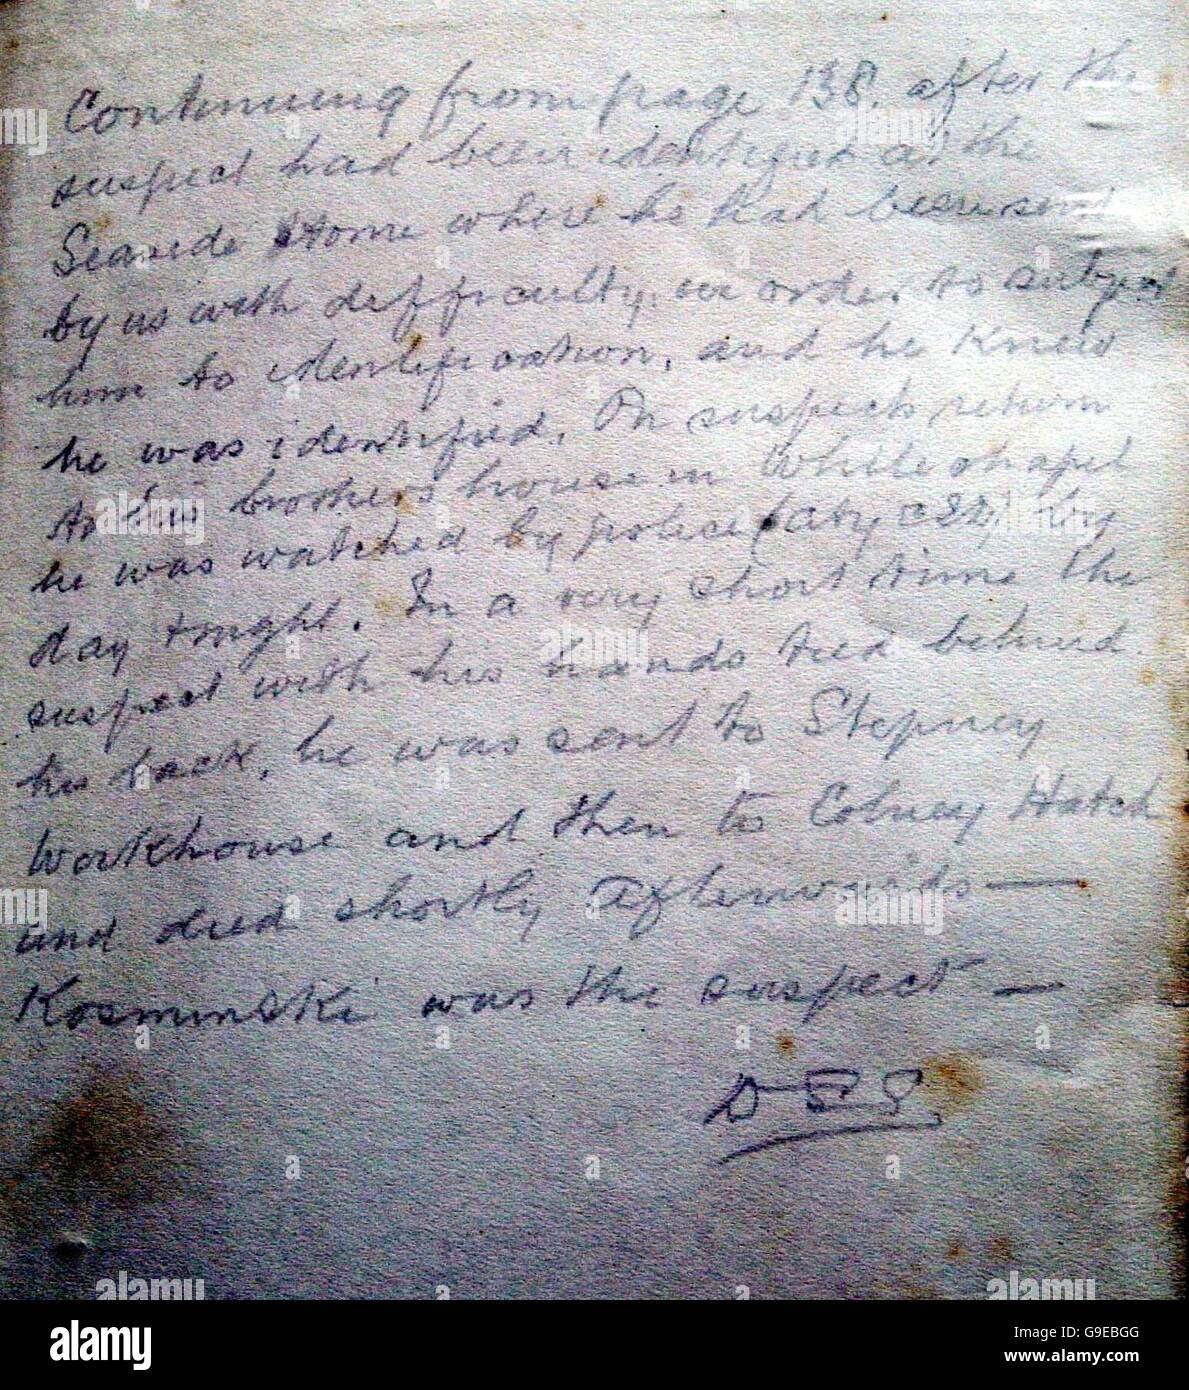 Continuing from page 138. after the
suspect had been identified at the
Seaside Home where he had been sent
by us with difficulty, in order to subject
him to identification, and he knew
he was identified. On suspects return
to his brothers house in Whitechapel
he was watched by police (City CID) by
day & night. In a very short time the
suspect with his hands tied behind
his back, he was sent to Stepney
Workhouse and then to Colney Hatch
and died shortly afterwards —
Kosminski was the suspect —
DSS
alamy stock photo
G9EBGG
www.alamy.com